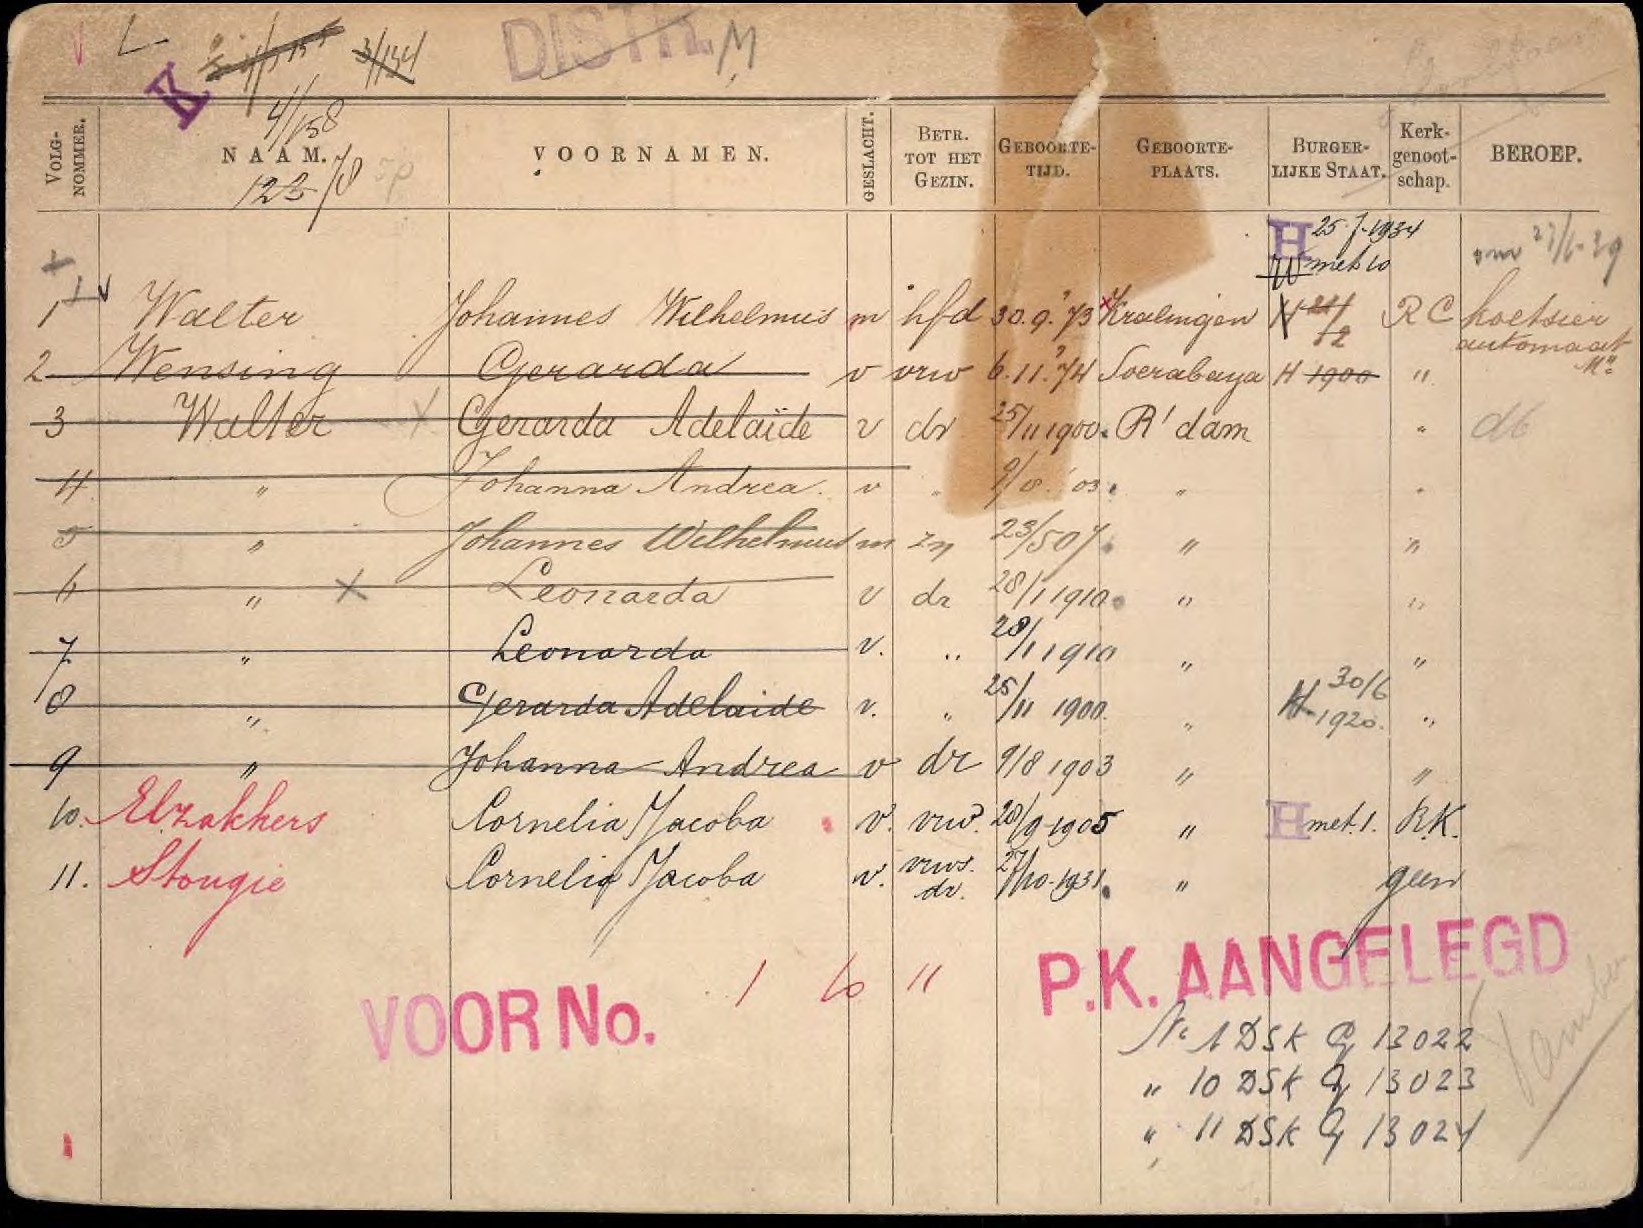 L 3/134 DISTR. M
K 4/158
VOLG-NOMMER. NAAM. VOORNAMEN. GESLACHT. BETR. TOT HET GEZIN. GEBOORTE-TIJD. GEBOORTE-PLAATS. BURGER-LIJKE STAAT. Kerk-genoot-schap. BEROEP.
H 25.7.1934
W met 10
1 Walter Johannes Wilhelmus m hfd 30.9.'73 Kralingen H R C koetsier
automaat
2 Wensing Gerarda v vrw 6.11.'74 Soerabaya H 1900 "
3 Walter Gerarda Adelaïde v dr 25/11 1900 R'dam "
4 " Johanna Andrea v " 9/8 '03 " "
5 " Johannes Wilhelmus m zn 23/5 07 " "
6 " Leonarda v dr 28/1 1910 " "
7 " Leonarda v. " 28/1 1910 " "
8 " Gerarda Adelaide v. " 25/11 1900 " H 30/6 1920 "
9 " Johanna Andrea v dr 9/8 1903 " "
10. Elzakkers Cornelia Jacoba v. vrw. 28/9-1905 " H met 1. R.K.
11. Stougie Cornelia Jacoba v. vrws. dr. 27/10-1931 " geen
VOOR No. 1 10 11 P.K. AANGELEGD
No 1 DSK G 13022
" 10 DSK G 13023
" 11 DSK G 13024